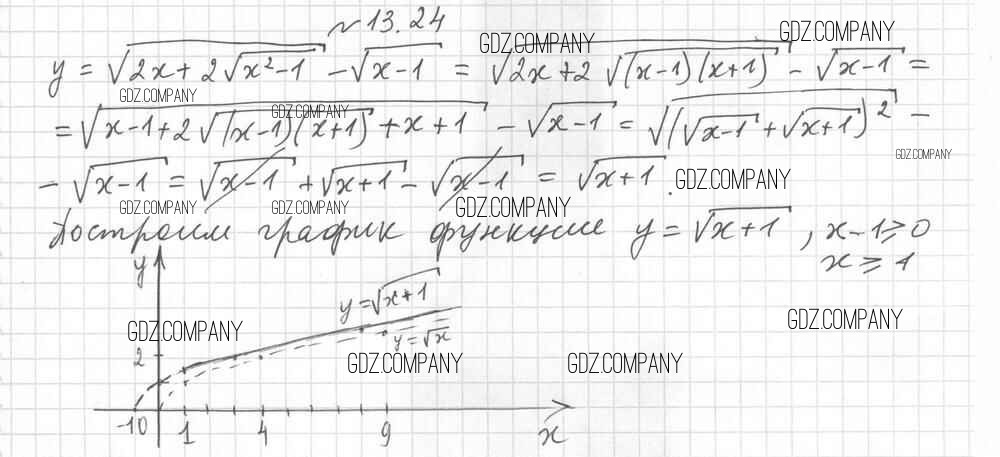 ~ 13.24
GDZ.COMPANY GDZ.COMPANY
y = √(2x + 2√(x²-1)) - √(x-1) = √(2x + 2√((x-1)(x+1))) - √(x-1) =
GDZ.COMPANY GDZ.COMPANY
= √(x-1+2√((x-1)(x+1)) + x+1) - √(x-1) = √((√(x-1) + √(x+1))²) -
GDZ.COMPANY
- √(x-1) = √(x-1) + √(x+1) - √(x-1) = √(x+1).
GDZ.COMPANY
GDZ.COMPANY GDZ.COMPANY GDZ.COMPANY
Построим график функции y = √(x+1), x-1≥0
x ≥ 1
y
y = √(x+1)
GDZ.COMPANY GDZ.COMPANY
y = √x
2 GDZ.COMPANY GDZ.COMPANY
-1 0 1 4 9 x